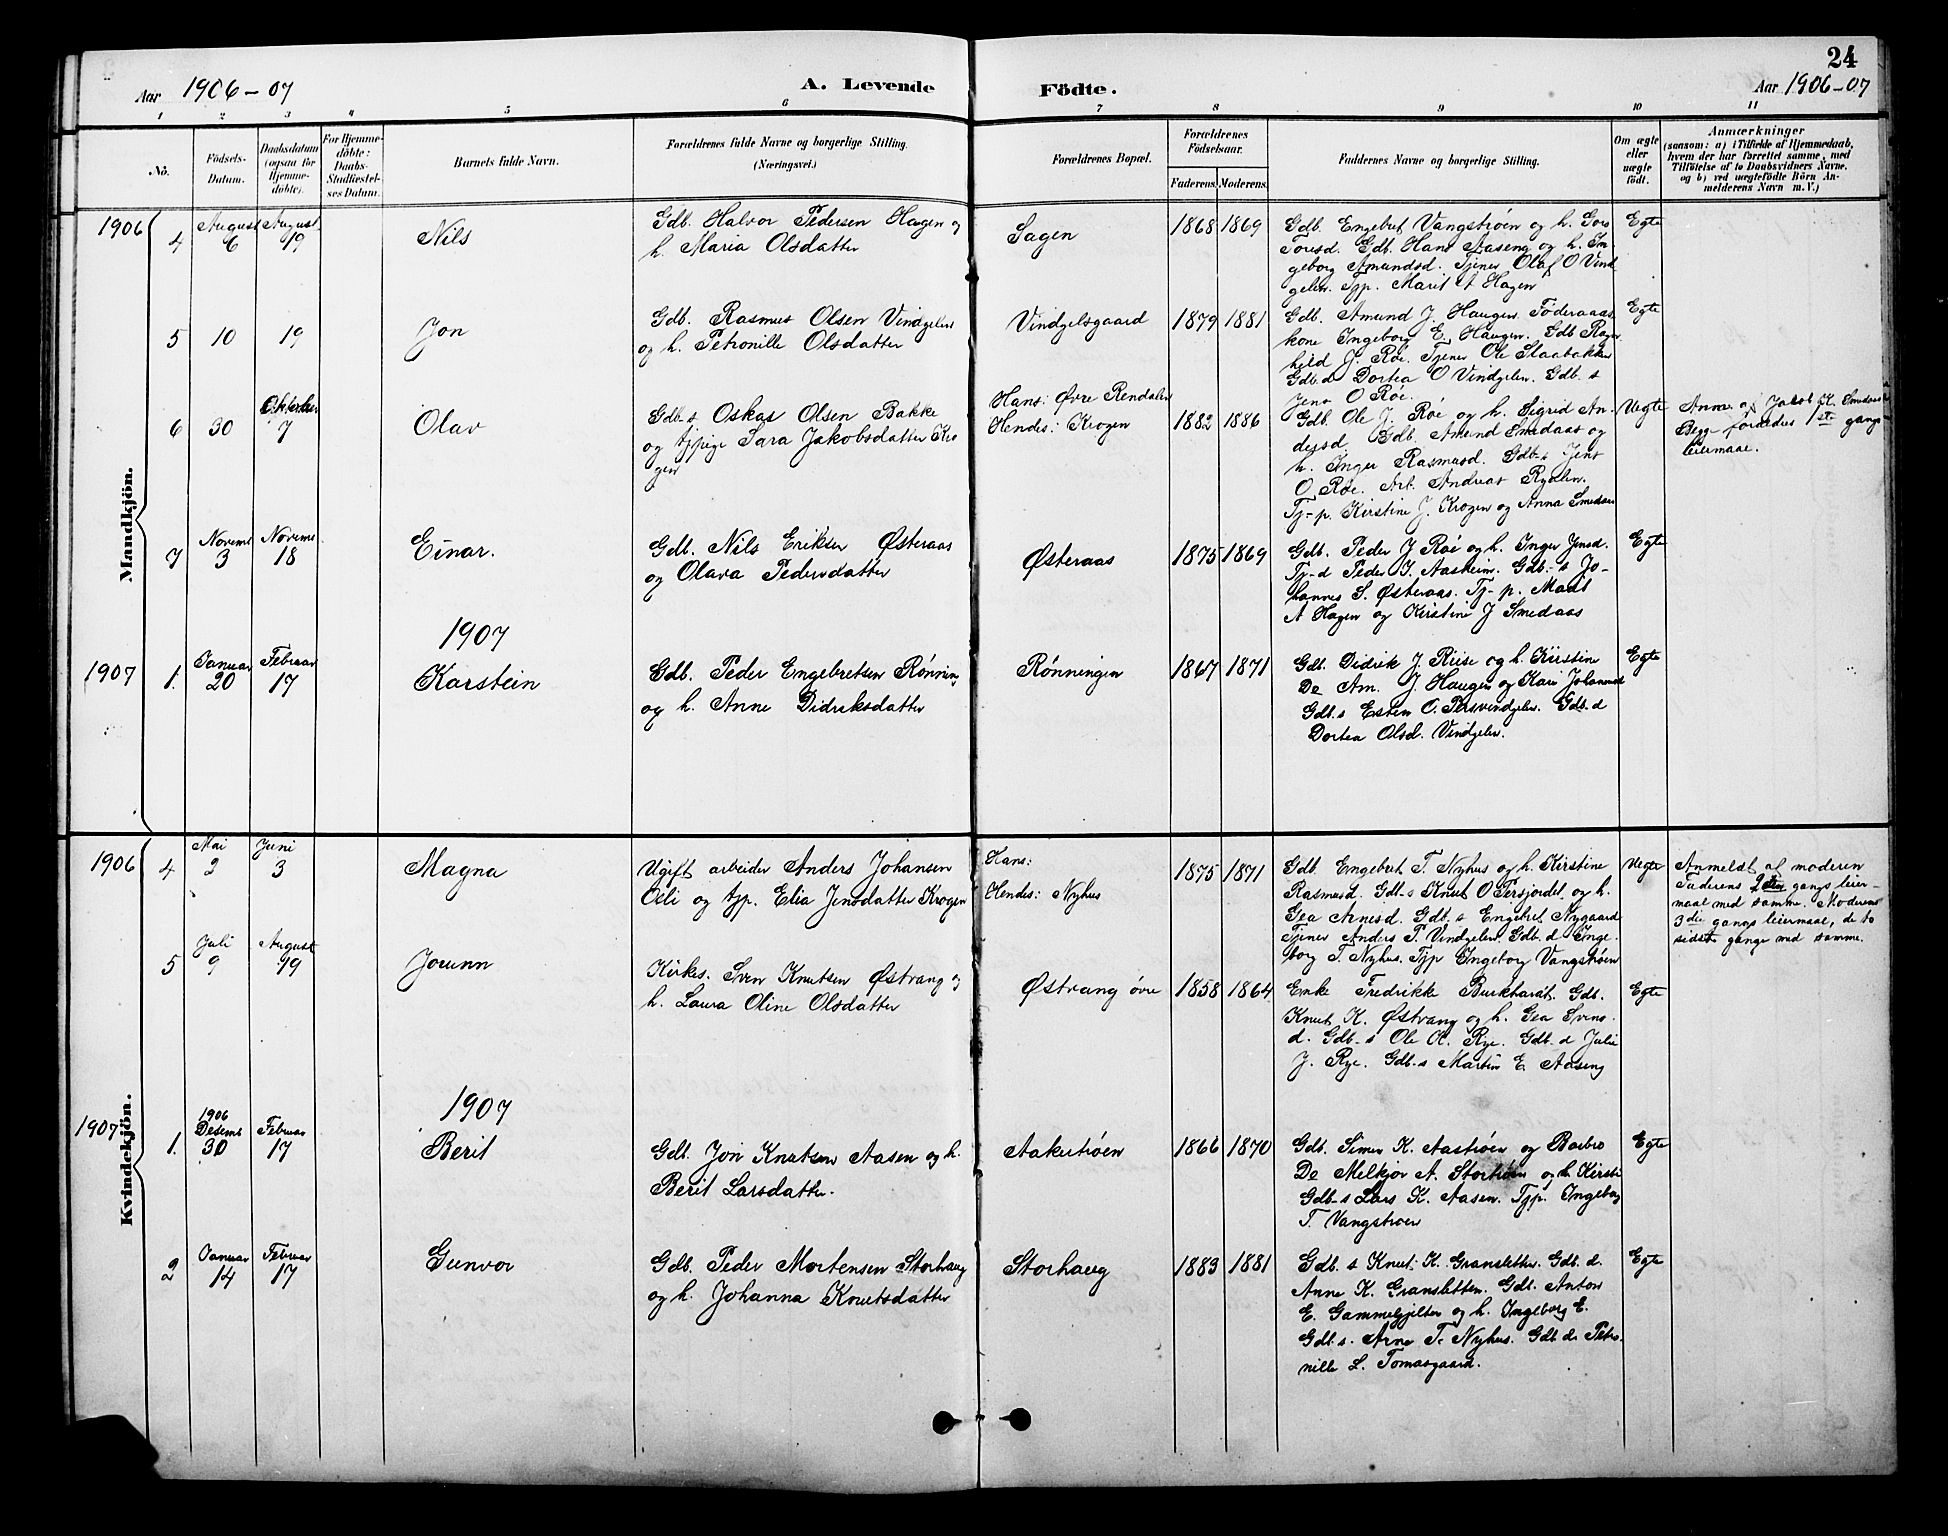 24
Aar 1906-07
A. Levende
Födte.
Aar 1906-07
1 2 3 4 5 6 7 8 9 10 11
No.
Födsels-
Datum.
Daabsdatum
(ogsaa for
Hjemme-
döbte).
For Hjemme-
döbte:
Daabs-
Stadfæstel-
ses Datum.
Barnets fulde Navn.
Forældrenes fulde Navne og borgerlige Stilling.
(Næringsvei.)
Forældrenes Bopæl.
Forældrenes
Födselsaar.
Faderens. Moderens.
Faddernes Navne og borgerlige Stilling.
Om ægte
eller
uægte
födt.
Anmærkninger
(saasom: a) i Tilfælde af Hjemmedaab,
hvem der har forrettet samme, med
Tilföielse af to Daabsvidners Navne,
og b) ved uægtefödte Börn An-
melderens Navn m. V.)
Mandkjön.
1906
4
August
6
August
19
Nils
Gdb. Halvor Pedersen Haugen og
h. Maria Olsdatter
Sagen
1868 1869
Gdb. Engebret Vangstrøen og h. Goro
Toresd. Gdb. Hans Aaseng og h. In-
geborg Amundsd. Tjener Olaf O Vind
gelen. Tjp. Marit A Hagen
Egte
5
10
19
Jon
Gdb. Rasmus Olsen Vindgelen
og h. Petronille Olsdatter
Vindgelsgaard
1879 1881
Gdb. Amund J. Haugen. Føderaads
kone Ingeborg E. Haugen. Gdb Ragn
hild J. Røe. Tjener Ole Slaabakken
Gdb.d Dortea O Vindgelen. Gdb. s
Jens O Røe.
Egte
6
30
Oktober
7
Olav
Gdb-s. Oskar Olsen Bakke
og tjpige Sara Jakobsdatter Kro
gen
Hans: Øvre Rendalen
Hendes: Krogen
1882 1886
Gdb. Ole J. Røe og h. Sigrid An-
dersd. Gdb. Amund Smedaas og
h. Inger Rasmusd. Gdb-s Jens
O Røe. Arb. Andreas Ryalen.
Tj-p. Kirstine J. Krogen og Anna Smedaas
Uegte
Anm. af Jacob K. Smedaas
Begge forældres 1ste gangs
leiermaal.
7
Novemb
3
Novemb
18
Einar.
Gdb. Nils Eriksen Østeraas
og Olava Pedersdatter
Østeraas
1875 1869
Gdb. Peder J Røe og h. Inger Jensd.
Tj-d Peder J. Aasheim. Gdb-s Jo-
hannes S. Østeraas. Tj-p. Marit
A Hagen og Kirstine J Smedaas
Egte
1907
1907
1.
Januar
20
Februar
17
Karstein
Gdb. Peder Engebretsen Rønning
og h. Anne Didriksdatter
Rønningen
1867 1871
Gdb. Didrik J. Riise og h. Kirstine
Do Am. J. Haugen og Kari Johannesd
Gdb.s Esten O. Persvindgelen. Gdb.d
Dortea Olsd. Vindgelen.
Egte
Kvindekjön.
1906
4
Mai
2
Juni
3
Magna
Ugift arbeider Anders Johansen
Osli og tjp. Elia Jensdatter Krogen
Hans:
Hendes: Nyhus
1875 1871
Gdb. Engebret T. Nyhus og h. Kirstine
Rasmusd. Gdb-s Knut O Persjordet og h.
Gea Arnesd. Gdb. s Engebret Nygaard
Tjener Anders P. Vindgelen. Gdb. d Inge-
borg T. Nyhus. Tjp Ingeborg Vangstrøen
Uegte
Anmeldt af moderen
Faderens 2den gangs leier-
maal med samme. Moderens
3die gangs leiermaal, de to
sidste gange med samme.
5
Juli
9
August
19
Jorunn
Kirkes. Sven Knutsen Østvang og
h. Laura Oline Olsdatter
Østvang øvre
1858 1864
Enke Fredrikke Burkhardt. Gdb.
Knut K. Østvang og h. Gea Svens-
d. Gdb-s Ole K. Rye. Gdb-d Julie
J. Rye. Gdb-s Martin E. Aaseng
Egte
1907
1907
1.
1906
Desemb
30
Februar
17
Berit
Gdb. Jon Knutsen Aasen og h.
Berit Larsdatter.
Aakertrøen
1866 1870
Gdb. Simen K. Aastrøen og Barbro
Do Melkjor A. Stortrøen og h. Kirsti
Gdb-s Lars K. Aasen. Tjp. Ingeborg
T. Vangstrøen
Egte
2
Januar
14
Februar
17
Gunvor
Gdb. Peder Mortensen Storhaug
og h. Johanna Knutsdatter
Storhaug
1883 1881
Gdb. s Knut K. Gransletten. Gdb. d.
Anne K. Gransletten. Gdb. Anton
E. Gammelgjelten og h. Ingeborg E.
Gdb. s. Arne T. Nyhus. Gdb. d. Petro-
nille L. Tomasgaard.
Egte